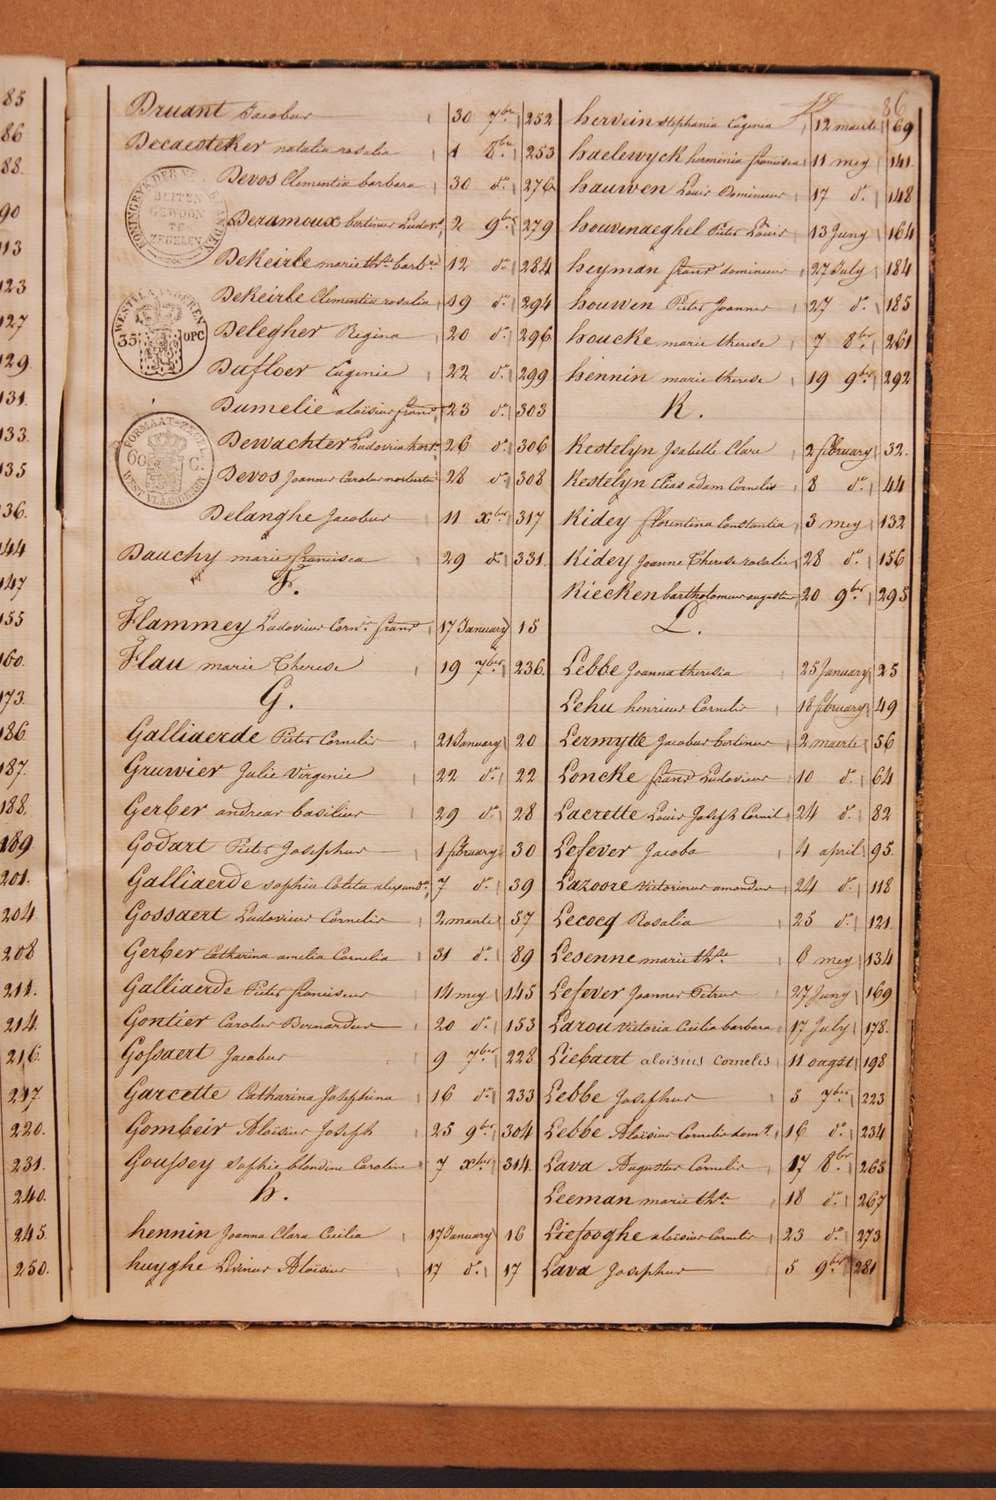 85
86
88.
90
113
123
127
129
131.
133.
135
136.
144
147
155
160.
173.
186
187.
188.
189
201.
204
208
211.
214.
216.
217
220.
231.
240.
245.
250.
86
Druant Jacobus 30 7bre 252
Decaesteker natalia rosalia 1 8bre 253
Devos Clementia barbara 30 do 276
Deramoux bertinus Ludovs 2 9bre 279
DeKeirle marie ths barbe 12 do 284
DeKeirle Clementia rosalia 19 do 294
Delegher Regina 20 do 296
Dufloer Eugenie 22 do 299
Dumelie aloisius frans 23 do 303
Dewachter Ludovia hort. 26 do 306
Devos Joannes Carolus norbertus 28 do 308
Delanghe Jacobus 11 xbre 317
Dauchy marie francisca 29 do 331.
F.
Flammey Ludovicus Corns frans 17 January 15
Flau marie Therese 19 7bre 236.
G.
Galliaerde Pieter Cornelis 21 January 20
Gruwier Julie Virginie 22 do 22
Gerber andreas basilius 29 do 28
Godart Pieter Josephus 1 february 30
Galliaerde sophia Coleta alexandre 7 do 39
Gossaert Ludovicus Cornelis 2 maerte 57
Gerber Catharina amelia Cornelia 31 do 89
Galliaerde Pieter franciscus 14 mey 145
Gontier Carolus Bernardus 20 do 153
Gossaert Jacobus 9 7bre 228
Garcette Catharina Josephina 16 do 233
Gombeir Aloisius Joseph 25 9bre 304
Goussey sophie blondine Caroline 7 xbre 314
h.
hennin Joanna Clara Cecilia 17 January 16
huyghe Livinus Aloïsius 17 do 17
hervein stephania Eugenia 12 maerte 69
haelewyck herminia francisca 11 mey 141.
hauwen Louis Dominicus 17 do 148
houvenaeghel Pieter Louis 13 Juny 164
heyman frans dominicus 27 July 184
houwen Pieter Joannes 27 do 185
houcke marie therese 7 8bre 261
hennin marie therese 19 9bre 292
K.
Kestelyn Isabelle Clara 2 february 32.
Kestelyn Elias adam Cornelis 8 do 44
Kidey florentina Constantia 3 mey 132
Kidey Joanne Therese rosalie 28 do 156
Kiecken bartholomeus augustin 20 9bre 295
L.
Lebbe Joanna theresia 25 January 25
Lehu henricus Cornelis 18 february 49
Lermytte Jacobus bertinus 2 maerte 56
Loncke frans Ludovicus 10 do 64
Lacrette Louis Joseph Cornil 24 do 82
Lefever Jacoba 4 april 95.
Lazoore Victorinus amandus 24 do 118
Lecocq Rosalia 25 do 121
Lesenne marie ths 6 mey 134
Lefever Joannes Petrus 27 Juny 169
Larou Victoria Cecilia barbara 17 July 178.
Liebaert aloisius cornelis 11 oogst 198
Lebbe Josephus 5 7bre 223
Lebbe Aloisius Cornelis domes 16 do 234
Lava Augustus Cornelis 17 8bre 265
Leeman marie ths 18 do 267
Liefooghe aloisius Cornelis 23 do 273
Lava Josephus 5 9bre 281
KONINGRYK DER NEDERLANDEN
BUITEN
GEWOON
TE
ZEGELEN
WESTVLAENDEREN
35 OPC
FORMAAT-ZEGEL
60 C.
WESTVLAENDEREN